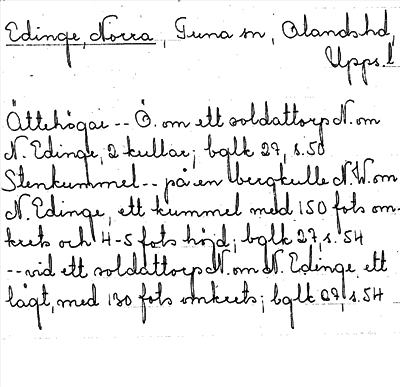 Edinge, Norra, Tuna sn, Olands hd,
Upps. l
Ättehögar -- Ö. om ett soldattorp N. om
N. Edinge, 2 kullar; bglk 27, s. 50
Stenkummel -- på en bergkulle N.W. om
N. Edinge, ett kummel med 150 fots om-
krets och 4-5 fots höjd; bglk 27, s. 54
-- vid ett soldattorp N. om N. Edinge ett
lågt, med 130 fots omkrets; bglk 27, s. 54